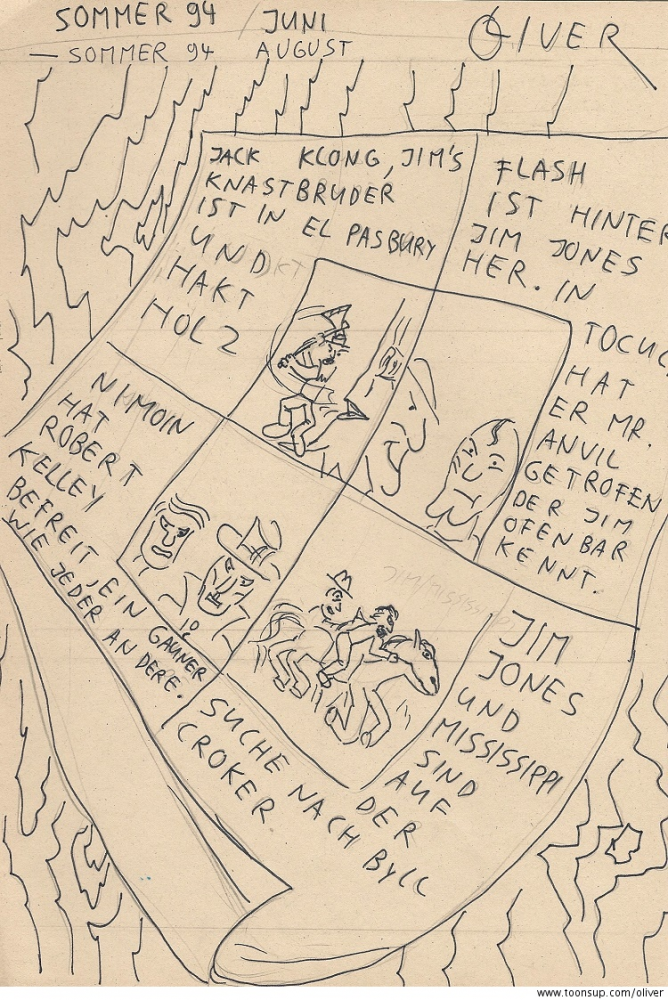 SOMMER 94 / JUNI
— SOMMER 94 AUGUST
OLIVER
JACK KLONG, JIM'S
KNASTBRUDER
IST IN EL PASBURY
UND
HAKT
HOLZ
FLASH
IST HINTER
JIM JONES
HER. IN
TOCUC
HAT
ER MR.
ANVIL
GETROFEN
DER JIM
OFENBAR
KENNT.
NIMOIN
HAT
ROBERT
KELLEY
BEFREIT, EIN GAUNER
WIE JEDER ANDERE.
JIM/MISSISSIPPI
JIM
JONES
UND
MISSISSIPPI
SIND
AUF
DER
SUCHE NACH BYLL
CROKER
www.toonsup.com/oliver